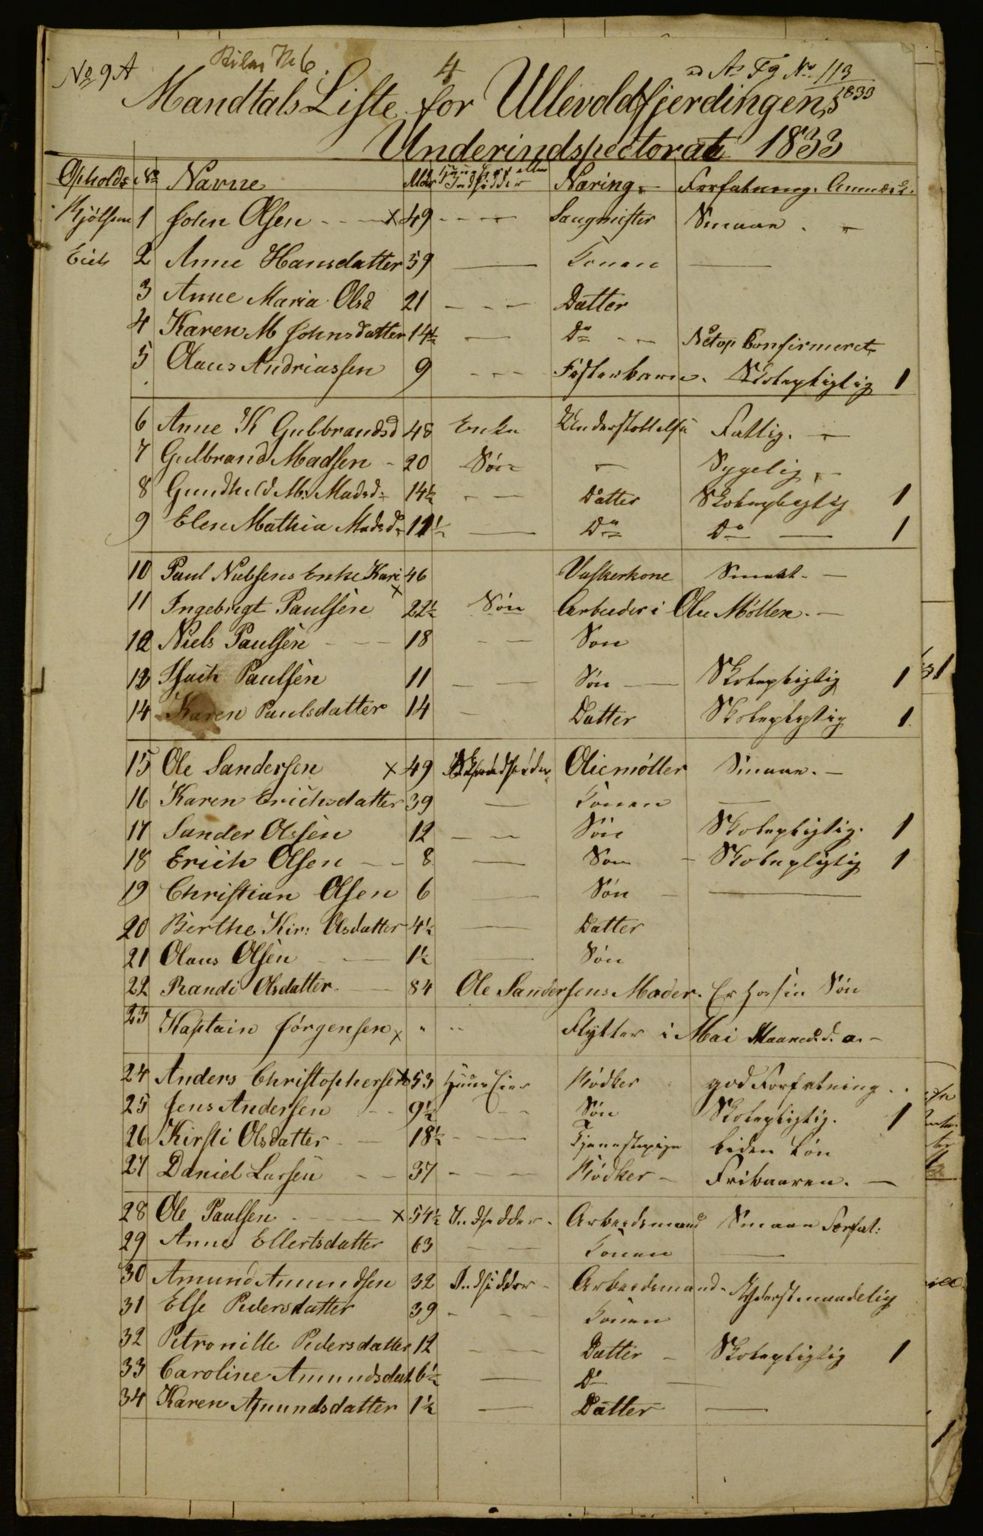 No 9 A
Bilag No 6
4
ad As Fg No 113
1833
Mandtals Liste for Ullevoldfjerdingens
Underindspectorat 1833
Opholds No Navne Alder Huuseier eller Indsidder Næring Forfatning Anmærk.
Kjølsen 1 John Olsen × 49 Saugmester Smaae
Eie 2 Anne Hansdatter 59 Konen
3 Anne Maria Olsd 21 Datter
4 Karen M Johnsdatter 14½ Do Netop Confirmeret
5 Olaus Andriassen 9 Fosterbarn Skolepligtig 1
6 Anne K Gulbrandsd 48 Enke Understøttelse Fattig
7 Gulbrand Madsen 20 Søn Sygelig
8 Gundhild M: Madsd 14½ Datter Skolepligtig 1
9 Elen Mathia Madsd 11½ Do Do 1
10 Paul Nielsens Enke Kari 46 Vaskerkone Smaat
11 Ingebrigt Paulsen × 22½ Søn Arbeider i Olie Møllen
12 Niels Paulsen 18 Søn
13 Isach Paulsen 11 Søn Skolepligtig 1
14 Karen Paulsdatter 14 Datter Skolepligtig 1
15 Ole Sandersen × 49 Oliemøller Smaae
16 Karen Erichsdatter 39 Konen
17 Sander Olsen 12 Søn Skolepligtig 1
18 Erich Olsen 8 Søn Skolepligtig 1
19 Christian Olsen 6 Søn
20 Birthe Kir: Olsdatter 4½ Datter
21 Olaus Olsen 1½ Søn
22 Randi Olsdatter 84 Ole Sandersens Moder Er hos sin Søn
23 Kaptain Jørgensen × " " Flytter i Mai Maaned d. a.
24 Anders Christophersen × 53 Huuseier Bødker god Forfatning
25 Jens Andersen 9½ Søn Skolepligtig 1
26 Kirsti Olsdatter 18½ Tjenestepige Liden Løn
27 Daniel Larsen 37 Bødker Fribaaren
28 Ole Paulsen × 54½ Indsidder Arbeidsmand Smaae Forfat:
29 Anne Ellertsdatter 63 Konen
30 Amund Amundsen 32 Indsidder Arbeidsmand Yderst maadelig
31 Else Pedersdatter 39 Konen
32 Petronille Pedersdatter 12 Datter Skolepligtig 1
33 Caroline Amundsdatt 6½ Do
34 Karen Amundsdatter 1½ Datter